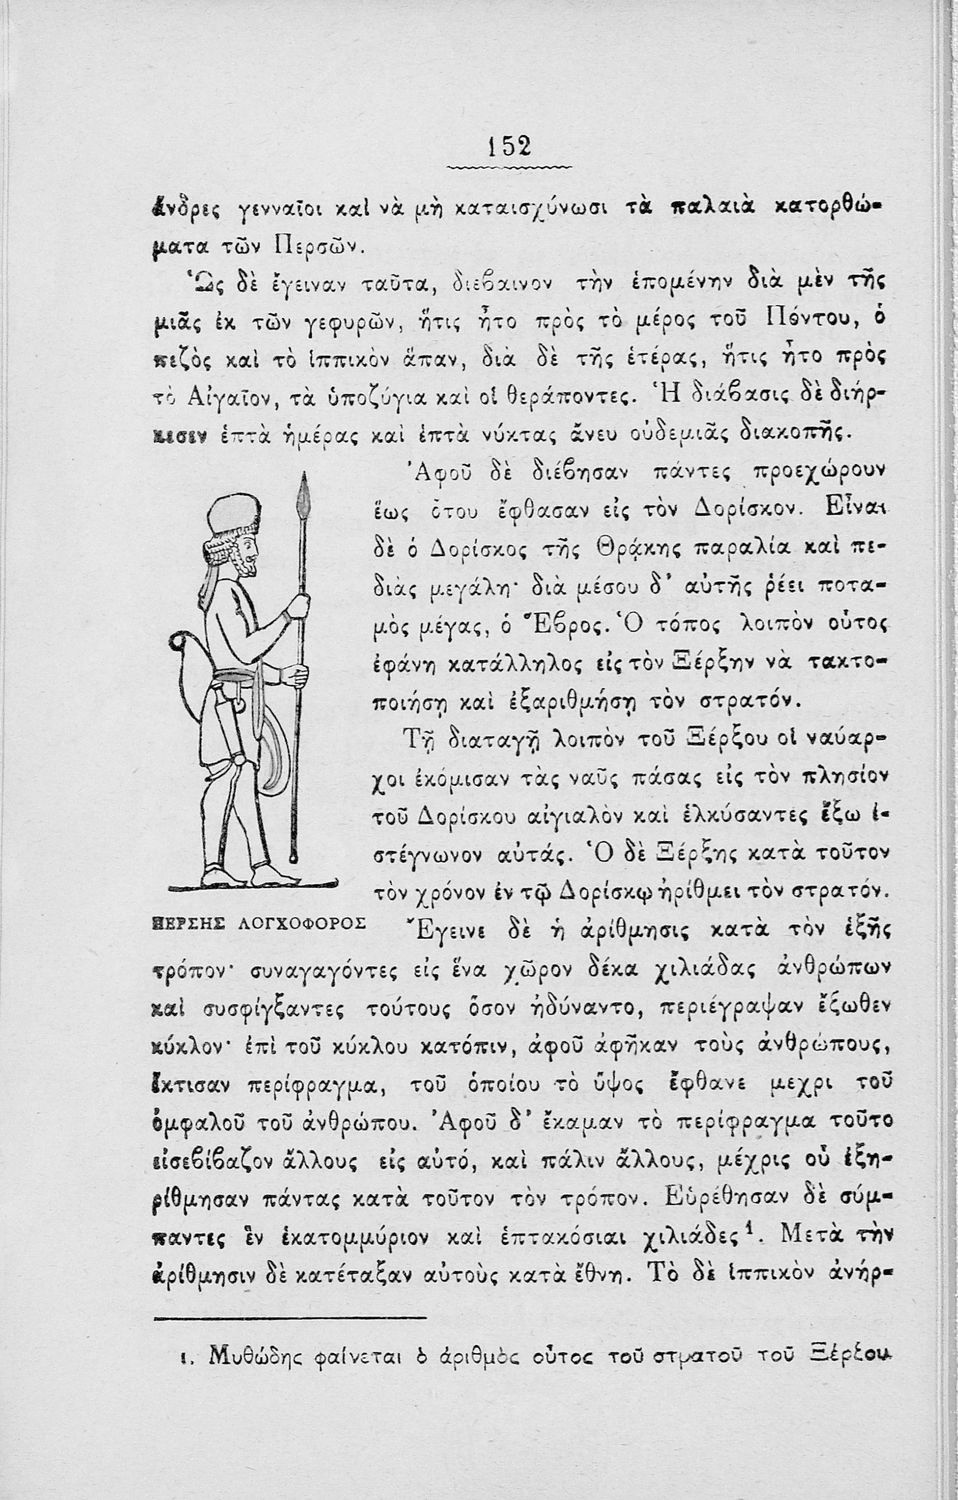 152
ἄνδρες γενναῖοι καὶ νὰ μὴ καταισχύνωσι τὰ παλαιὰ κατορθώ-
ματα τῶν Περσῶν.
Ὡς δὲ ἔγειναν ταῦτα, διέβαινον τὴν ἑπομένην διὰ μὲν τῆς
μιᾶς ἐκ τῶν γεφυρῶν, ἥτις ἦτο πρὸς τὸ μέρος τοῦ Πόντου, ὁ
πεζὸς καὶ τὸ ἱππικὸν ἅπαν, διὰ δὲ τῆς ἑτέρας, ἥτις ἦτο πρὸς
τὸ Αἰγαῖον, τὰ ὑποζύγια καὶ οἱ θεράποντες. Ἡ διάβασις δὲ διήρ-
κεσεν ἑπτὰ ἡμέρας καὶ ἑπτὰ νύκτας ἄνευ οὐδεμιᾶς διακοπῆς.
Ἀφοῦ δὲ διέβησαν πάντες προεχώρουν
ἕως ὅτου ἔφθασαν εἰς τὸν Δορίσκον. Εἶναι
δὲ ὁ Δορίσκος τῆς Θρᾴκης παραλία καὶ πε-
διὰς μεγάλη· διὰ μέσου δ᾽ αὐτῆς ῥέει ποτα-
μὸς μέγας, ὁ Ἕβρος. Ὁ τόπος λοιπὸν οὗτος
ἐφάνη κατάλληλος εἰς τὸν Ξέρξην νὰ τακτο-
ποιήσῃ καὶ ἐξαριθμήσῃ τὸν στρατόν.
Τῇ διαταγῇ λοιπὸν τοῦ Ξέρξου οἱ ναύαρ-
χοι ἐκόμισαν τὰς ναῦς πάσας εἰς τὸν πλησίον
τοῦ Δορίσκου αἰγιαλὸν καὶ ἑλκύσαντες ἔξω ἐ-
στέγνωνον αὐτάς. Ὁ δὲ Ξέρξης κατὰ τοῦτον
τὸν χρόνον ἐν τῷ Δορίσκῳ ἠρίθμει τὸν στρατόν.
ΠΕΡΣΗΣ ΛΟΓΧΟΦΟΡΟΣ
Ἔγεινε δὲ ἡ ἀρίθμησις κατὰ τὸν ἑξῆς
τρόπον· συναγαγόντες εἰς ἕνα χῶρον δέκα χιλιάδας ἀνθρώπων
καὶ συσφίγξαντες τούτους ὅσον ἠδύναντο, περιέγραψαν ἔξωθεν
κύκλον· ἐπὶ τοῦ κύκλου κατόπιν, ἀφοῦ ἀφῆκαν τοὺς ἀνθρώπους,
ἔκτισαν περίφραγμα, τοῦ ὁποίου τὸ ὕψος ἔφθανε μεχρι τοῦ
ὀμφαλοῦ τοῦ ἀνθρώπου. Ἀφοῦ δ᾽ ἔκαμαν τὸ περίφραγμα τοῦτο
εἰσεβίβαζον ἄλλους εἰς αὐτό, καὶ πάλιν ἄλλους, μέχρις οὗ ἐξη-
ρίθμησαν πάντας κατὰ τοῦτον τὸν τρόπον. Εὑρέθησαν δὲ σύμ-
παντες ἓν ἑκατομμύριον καὶ ἑπτακόσιαι χιλιάδες¹. Μετὰ τὴν
ἀρίθμησιν δὲ κατέταξαν αὐτοὺς κατὰ ἔθνη. Τὸ δὲ ἱππικὸν ἀνήρ-
1. Μυθώδης φαίνεται ὁ ἀριθμὸς οὗτος τοῦ στρατοῦ τοῦ Ξέρξου